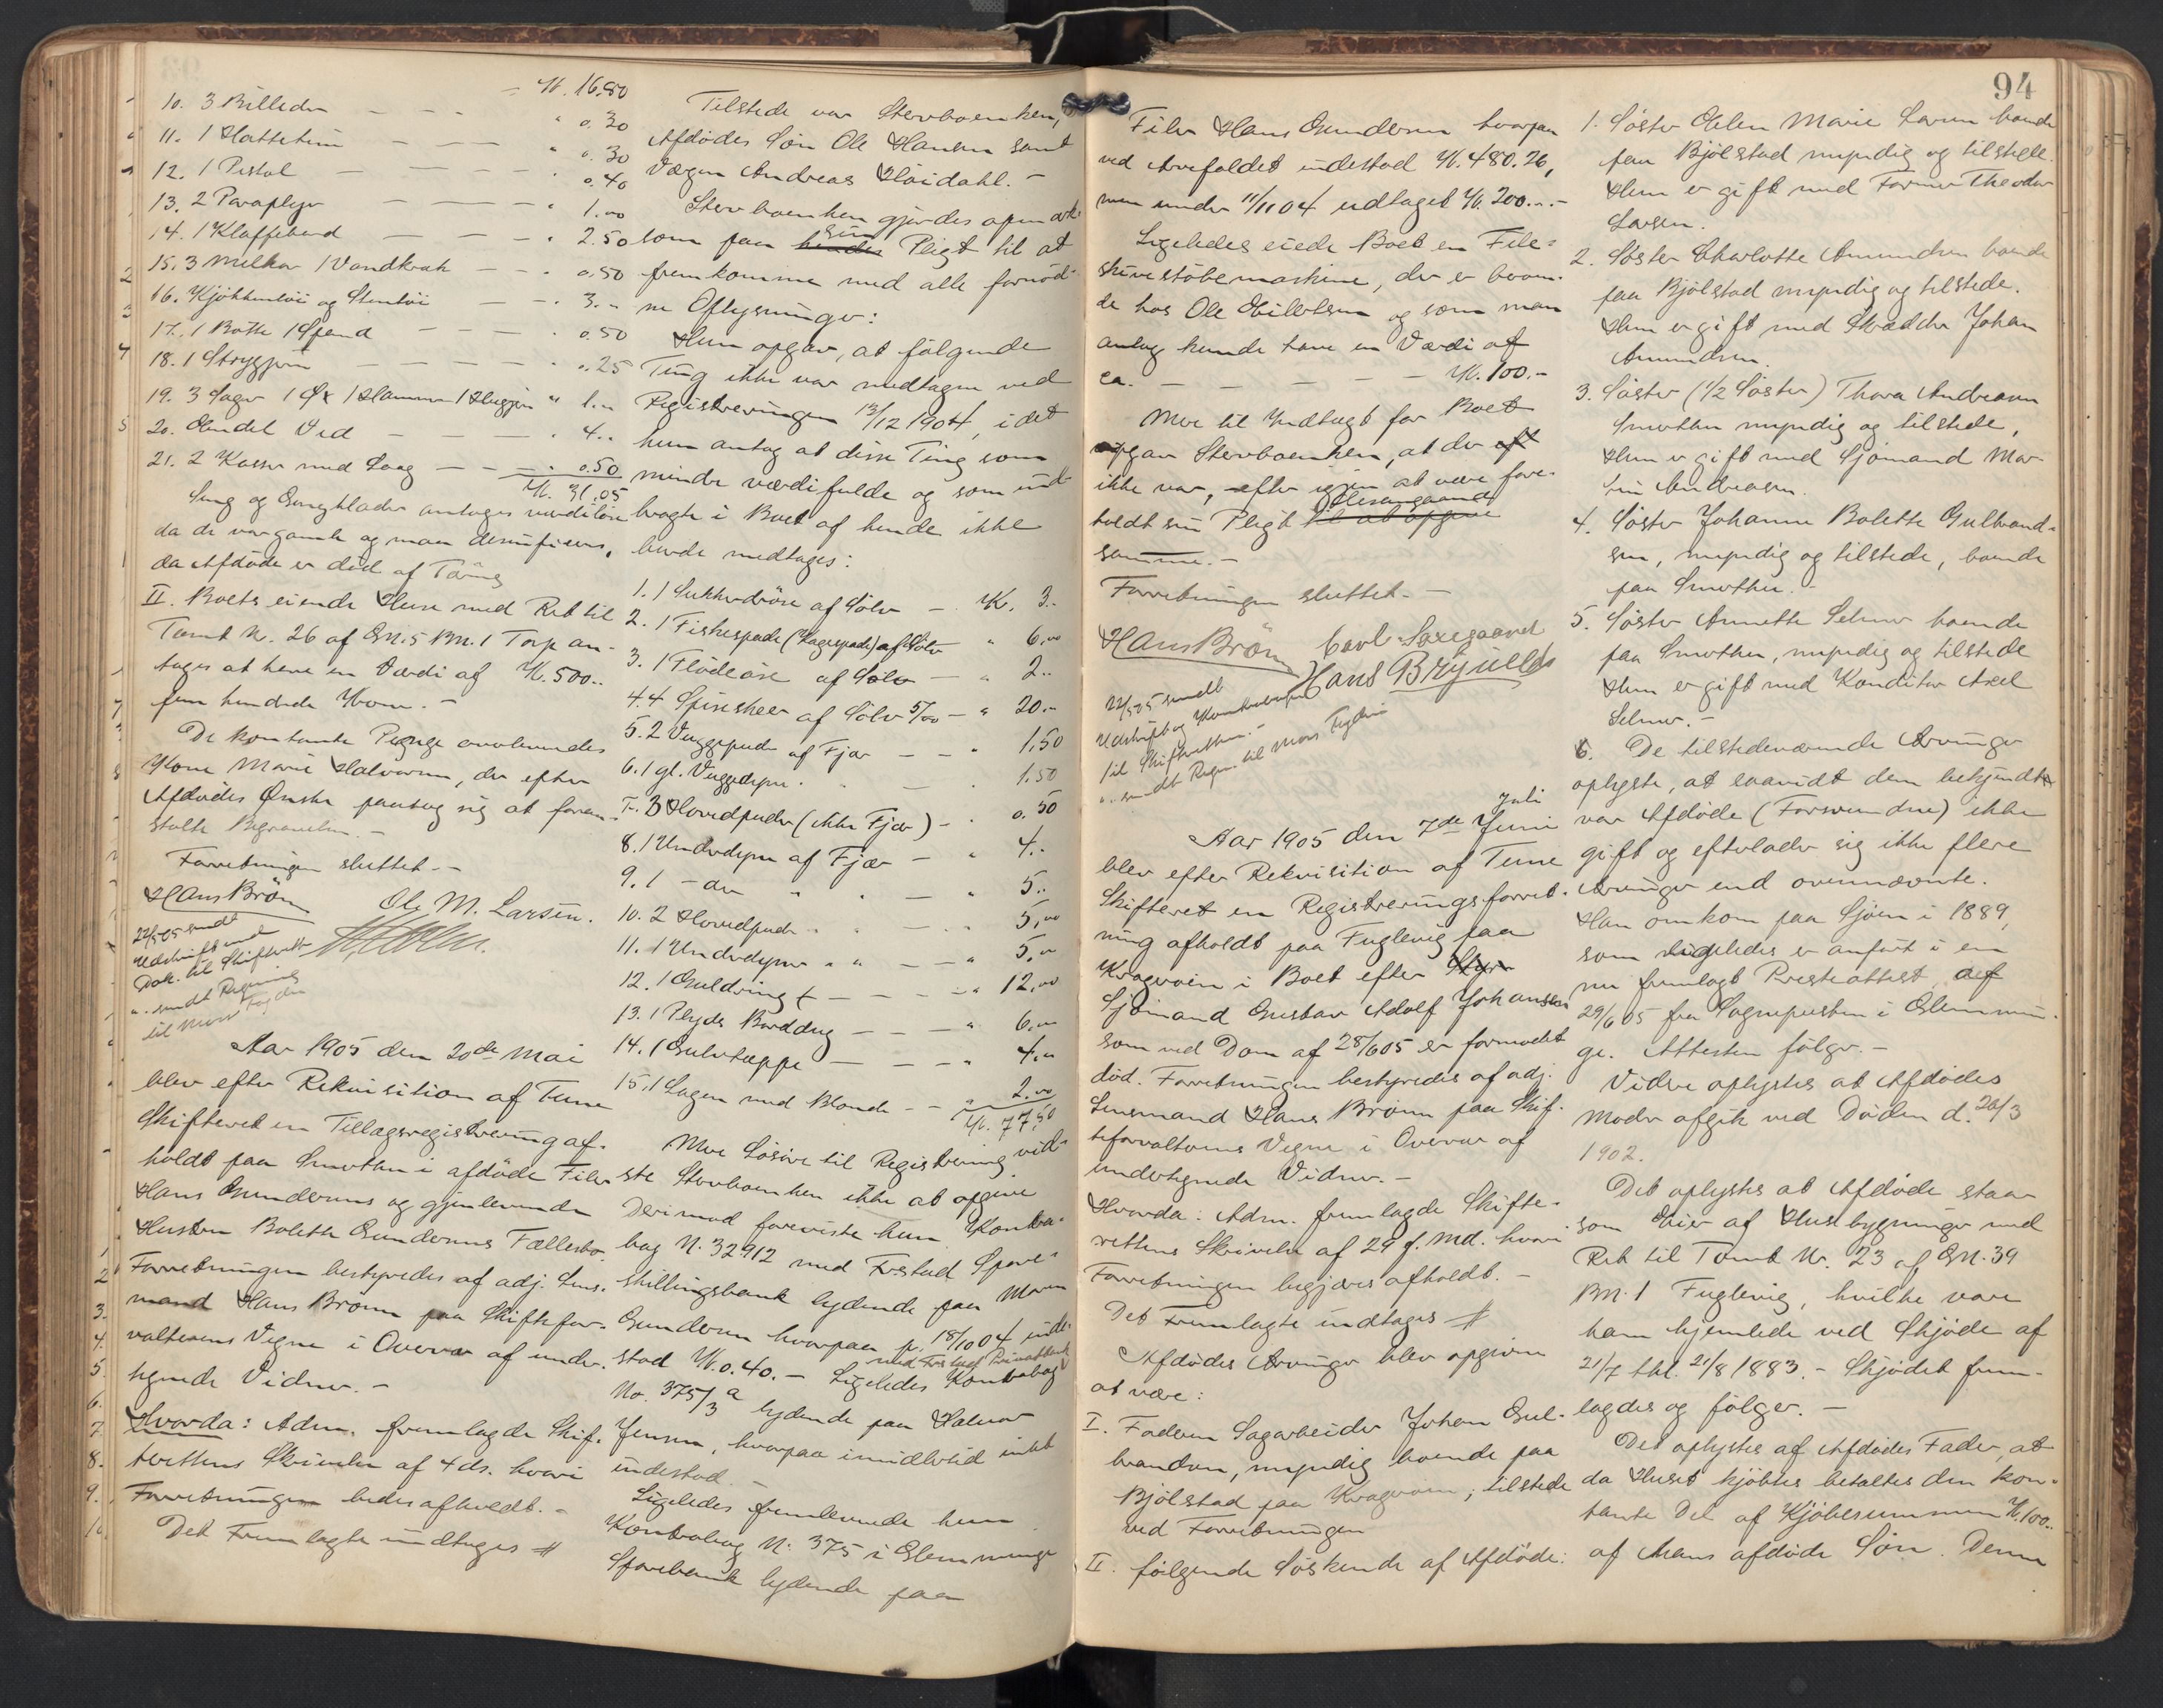 Kr. 16.80
10. 3 Billeder — — - " 0.30
11. 1 Hattetrin — — — " 0.30
12. 1 Pistol — — — — " 0.40
13. 2 Paraplyer — — — — " 1.00
14. 1 Klaffebord — — — " 2.50
15. 3 Melkar 1 Vandkruk — — " 0.50
16. Kjökkentöi og Stentöi — — " 3.-
17. 1 Bötte 1 Spand — — — " 0.50
18. 1 Strygjern — — — — " 0.25
19. 3 Sager 1 Öx 1 Hammer 1 Hugjern " 1.-
20. Endel Ved — — — — " 4.-
21. 2 Kasser med Laag — — " 0.50
Kr. 31.05
Seng og Sengklæder antages værdilöse
da de var gamle og maa desinficeres,
da Afdöde er död af Tæring
II. Boets eiende Huse med Ret til
Tomt N. 26 af Gn. 5 Bn. 1 Torp an-
tages at have en Værdi af Kr. 500..
fem hundrede Kroner. -
De kontante Penge overleveredes
Kone Marie Halvorsen, der efter
Afdödes Önske paatog sig at foran-
stalte Begravelsen. -
Forretningen sluttet. -
Hans Brönn
Ole M. Larsen.
22/5 05 sendt
Udskrift med
Dok. til Skifteretten
u. sendt Regning
til Moss Fogderi
Aar 1905 den 20de Mai
blev efter Rekvisition af Tune
Skifteret en Tillægsregistrering af-
holdt paa Smerthu i afdöde Filer
Hans Gundersens og gjenlevende
Hustru Bolette Gundersens Fællesbo.
Forretningen bestyredes af adj. Lens-
mand Hans Brönn paa Skiftefor-
valterens Vegne i Overvær af under-
tegnede Vidner. -
Hvorda: Adm. fremlagde Skif-
terettens Skrivelse af 4 ds. hvori
Forretningen bedes afholdt. -
Det Fremlagte indtages #
Tilstede var Stervboenken,
Afdödes Sön Ole Hansen samt
Værgen Andreas Höidahl. -
Stervboenken gjordes opmærk-
som paa hendes sin Pligt til at
fremkomme med alle fornöd-
ne Oplysninger:
Hun opgav, at fölgende
Ting ikke var medtagne ved
Registreringen 13/12 1904, i det
hun antog at disse Ting som
mindre værdifulde og som ind-
bragte i Boet af hende ikke
burde medtages:
1. 1 Sukkerdröse af Sölv — Kr. 3..
2. 1 Fiskespade (Kagespade) af Sölv " 6.00
3. 1 Flödeöse af Sölv — " 2..
4. 4 Spiseskeer af Sölv 5/00 — " 20.-
5. 2 Vuggepuder af Fjær — — " 1.50
6. 1 gl. Vuggedyne " — " 1.50
7. 3 Hovedpuder (ikke Fjær) - " 0.50
8. 1 Underdyne af Fjær — " 4.-
9. 1 - do " " — " 5..
10. 2 Hovedpuder " " — " 5.00
11. 1 Underdyne " " — " 5.00
12. 1 Guldring — — — " 12.00
13. 1 Plyds Borddug — — " 6.00
14. 1 Gulvtæppe — — — " 4.00
15. 1 Lagen med Blonde - - " 2.00
Kr. 77.50
Mere Lösöre til Registrering vid-
ste Stervboenken ikke at opgive
Derimod foreviste hun Kontra-
bog N. 32912 med Fr.stad Spare-
skillingsbank lydende paa Maren
Gundersen hvorpaa pr. 18/10 04 inde-
stod Kr. 0.40. - Ligeledes Kontrabog
med Fr.stad Privatbank
No. 375/3 a lydende paa Halvor
Jensen, hvorpaa imidlertid intet
indestod. -
Ligeledes fremleverede hun
Kontrabog N. 375 i Glemminge
Sparebank lydende paa
94
Filer Hans Gundersen hvorpaa
ved Arvefaldet indestod Kr. 480.26,
men under 11/11 04 udtaget Kr. 200.. -
Ligeledes eiede Boet en File-
skivestöbemaskine, der er beroen-
de hos Ole Gilbertsen og som man
antog kunde have en Værdi af
ca. — — — — — Kr. 100.-
Mere til Indtægt for Boet
opgav Stervboenken, at der oft
ikke var, efter igjen at være fore-
holdt sin Pligt til at opgive desangaaende
samme. -
Forretningen sluttet. -
Hans Brönn
Carl Saxegaard
Hans Brynildsen
22/5 05 sendt
Udskrift og Kontrabøger
til Skifteretten. -
u. sendt Regn. til Moss Fogderi
Juli
Aar 1905 den 7de Juni
blev efter Rekvisition af Tune
Skifteret en Registreringsforret-
ning afholdt paa Fuglevig paa
Kragerøen i Boet efter Styr
Sjömand Gustav Adolf Johansen
som ved Dom af 28/6 05 er formodet
död. Forretningen bestyredes af adj.
Lensmand Hans Brönn paa Skif-
teforvalterens Vegne i Overvær af
undertegnede Vidner. -
Hvorda: Adm. fremlagde Skifte-
rettens Skrivelse af 29 f. Md. hvori
Forretningen begjæres afholdt. -
Det Fremlagte indtages #
Afdödes Arvinger blev opgivne
at være:
I. Faderen Sagarbeider Johan Gul-
brandsen, myndig boende paa
Bjölstad paa Kragerøen; tilstede
ved Forretningen
II. fölgende Söskende af Afdöde:
1. Söster Ellen Marie Larsen boende
paa Bjölstad myndig og tilstede.
Hun er gift med Former Theodor
Larsen.
2. Söster Charlotte Amundsen boende
paa Bjölstad myndig og tilstede.
Hun er gift med Skrædder Johan
Amundsen.
3. Söster (1/2 Söster) Thora Andreasen
Smerthu myndig og tilstede,
Hun er gift med Sjömand Mar-
tin Andreasen.
4. Söster Johanne Bolette Gulbrand-
sen, myndig og tilstede, boende
paa Smerthu. -
5. Söster Annette Selmer boende
paa Smerthu, myndig og tilstede
Hun er gift med Konditor Axel
Selmer. -
6. De tilstedeværende Arvinger
oplyste, at saavidt dem bekjendt
var Afdöde (Forsvundne) ikke
gift og efterlader sig ikke flere
Arvinger end ovennævnte.
Han omkom paa Sjöen i 1889,
som ligeledes er anfört i en
nu fremlagt Presteattest af
29/6 05 fra Sognepresten i Glemmin-
ge. Attesten fölger. -
Videre oplystes at Afdödes
Moder afgik ved Döden d. 26/3
1902.
Det oplystes at Afdöde staar
som Eier af Husbygninger med
Ret til Tomt Nr. 23 af Gn. 39
Bn. 1 Fuglevig, hvilke vare
ham hjemlede ved Skjöde af
21/7 thl. 21/8 1883. - Skjödet frem-
lagdes og fölger. -
Det oplystes af Afdödes Fader, at
da Huset kjöbtes betaltes den kon-
tante Del af Kjöbesummen Kr. 100..
af hans afdöde Sön. Denne